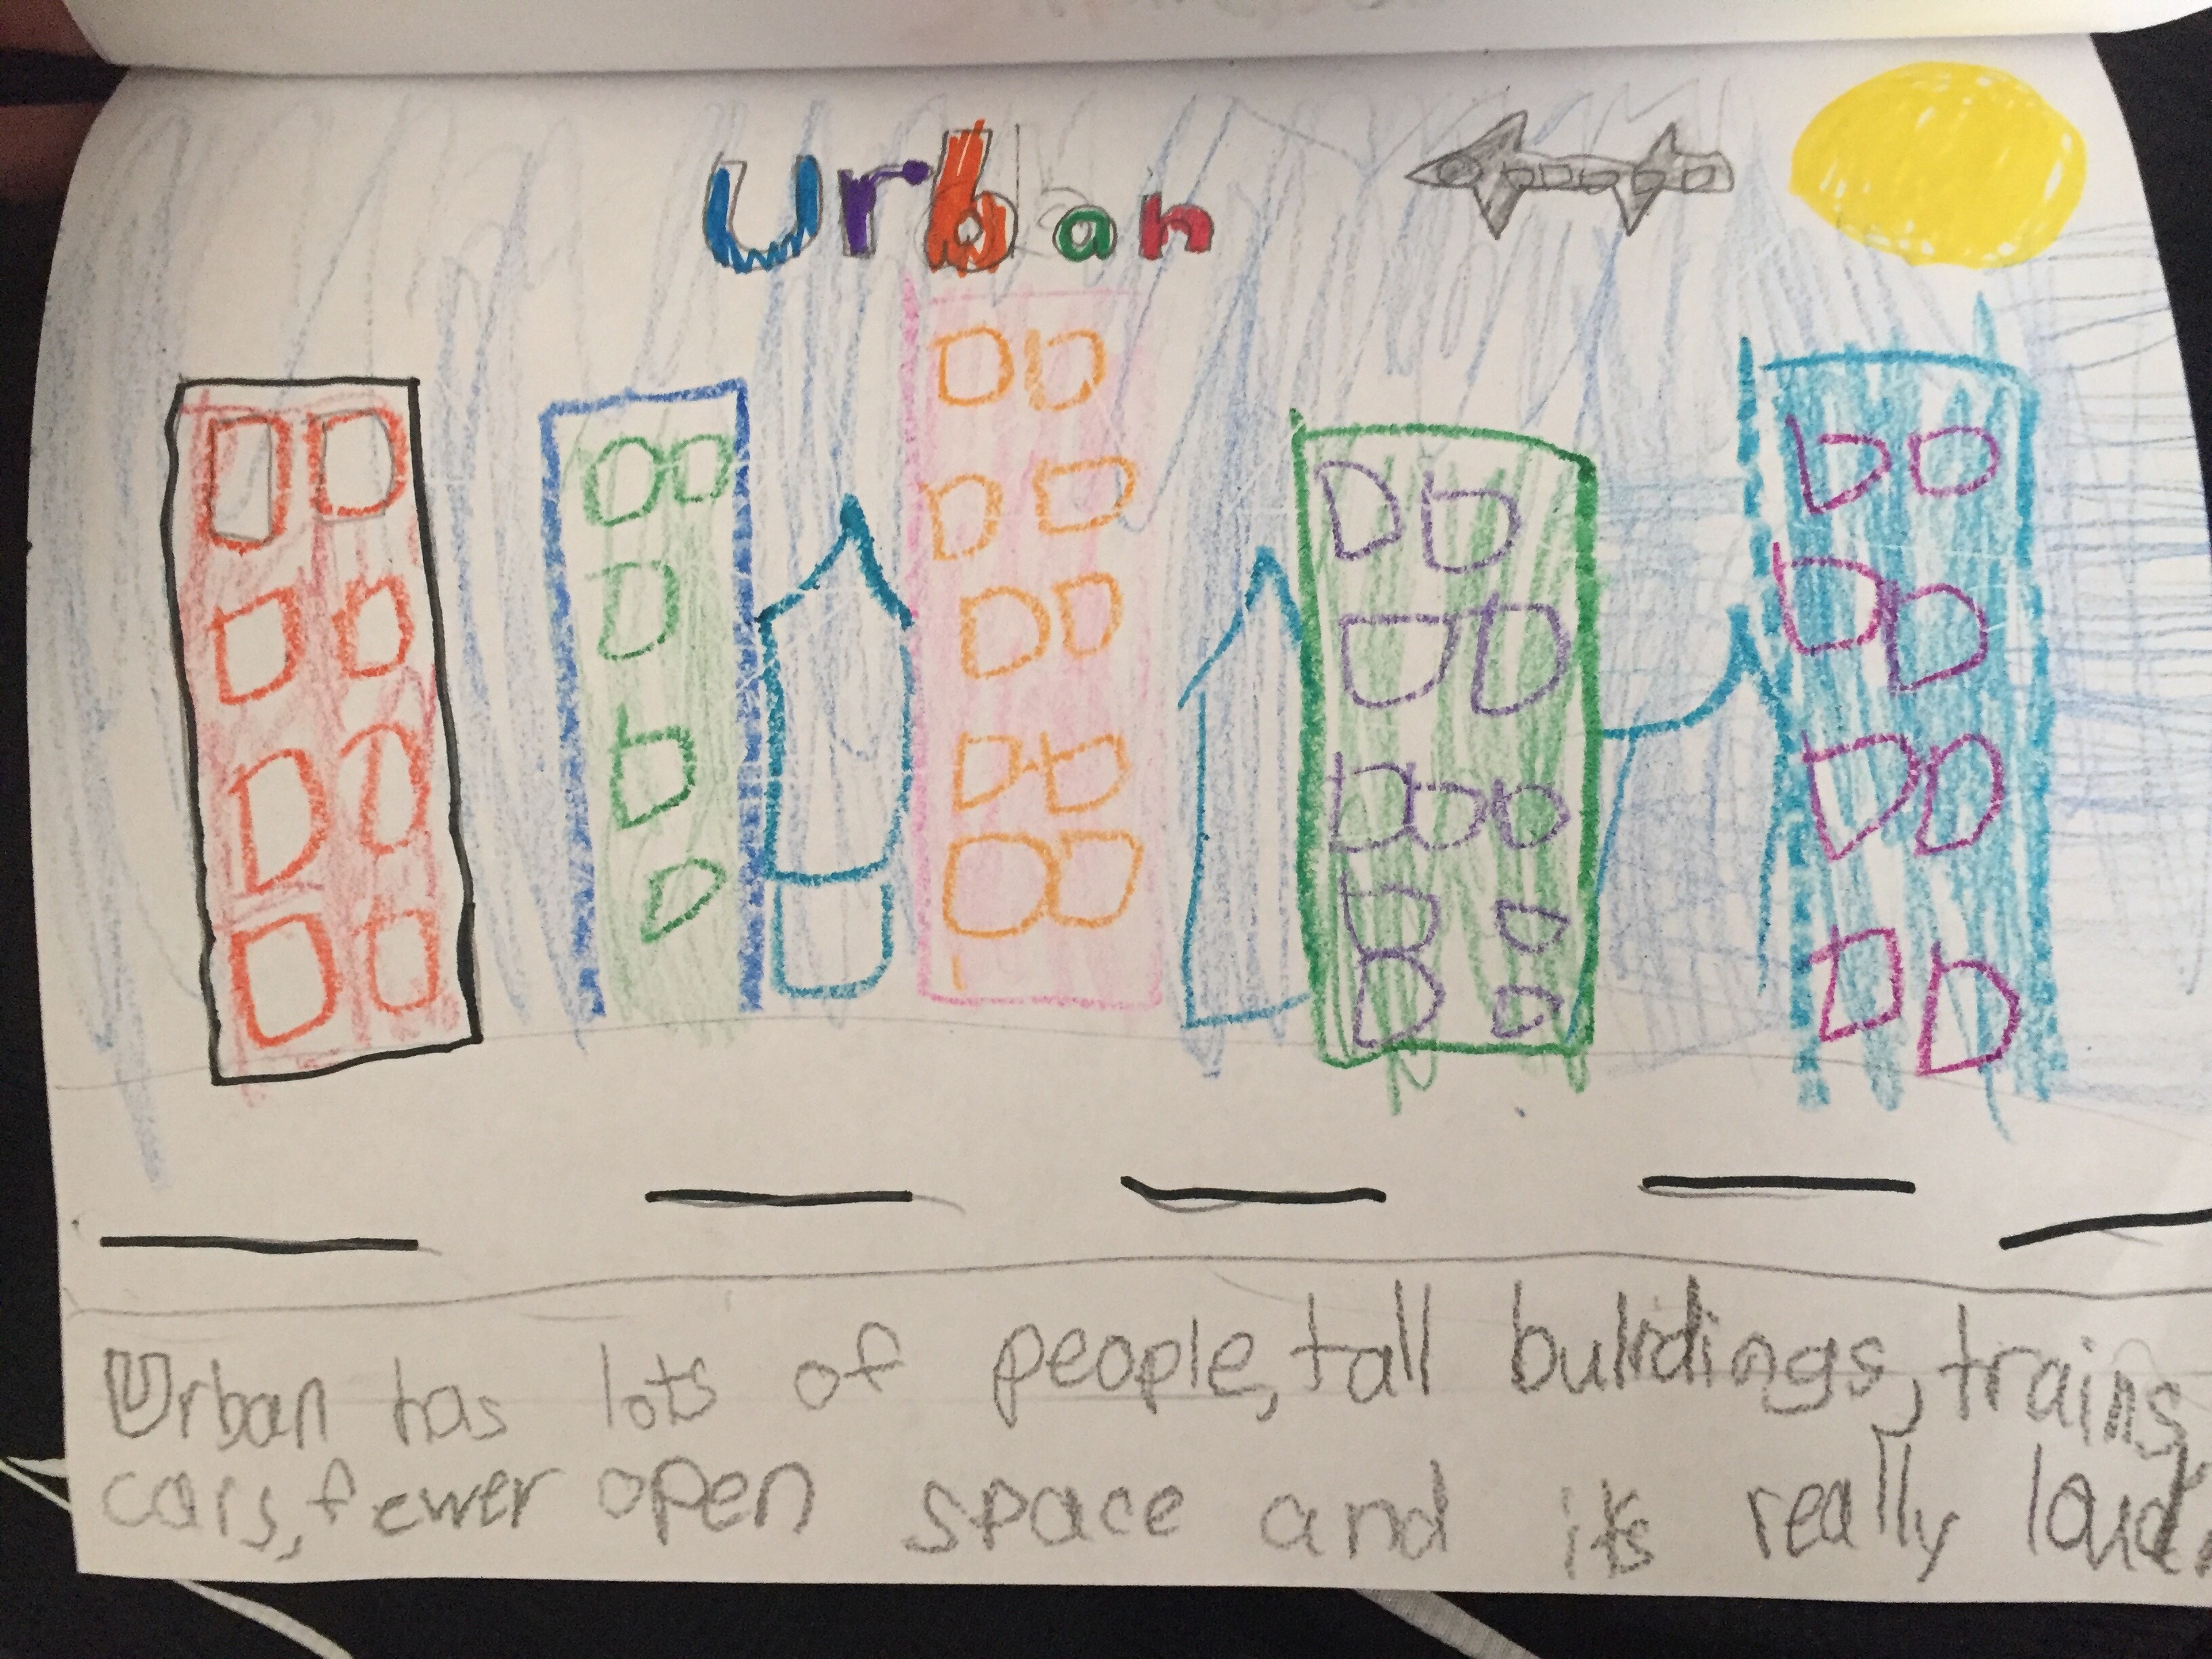 Urban
Urban has lots of people, tall buildings, trains
cars, fewer open space and it's really loud.